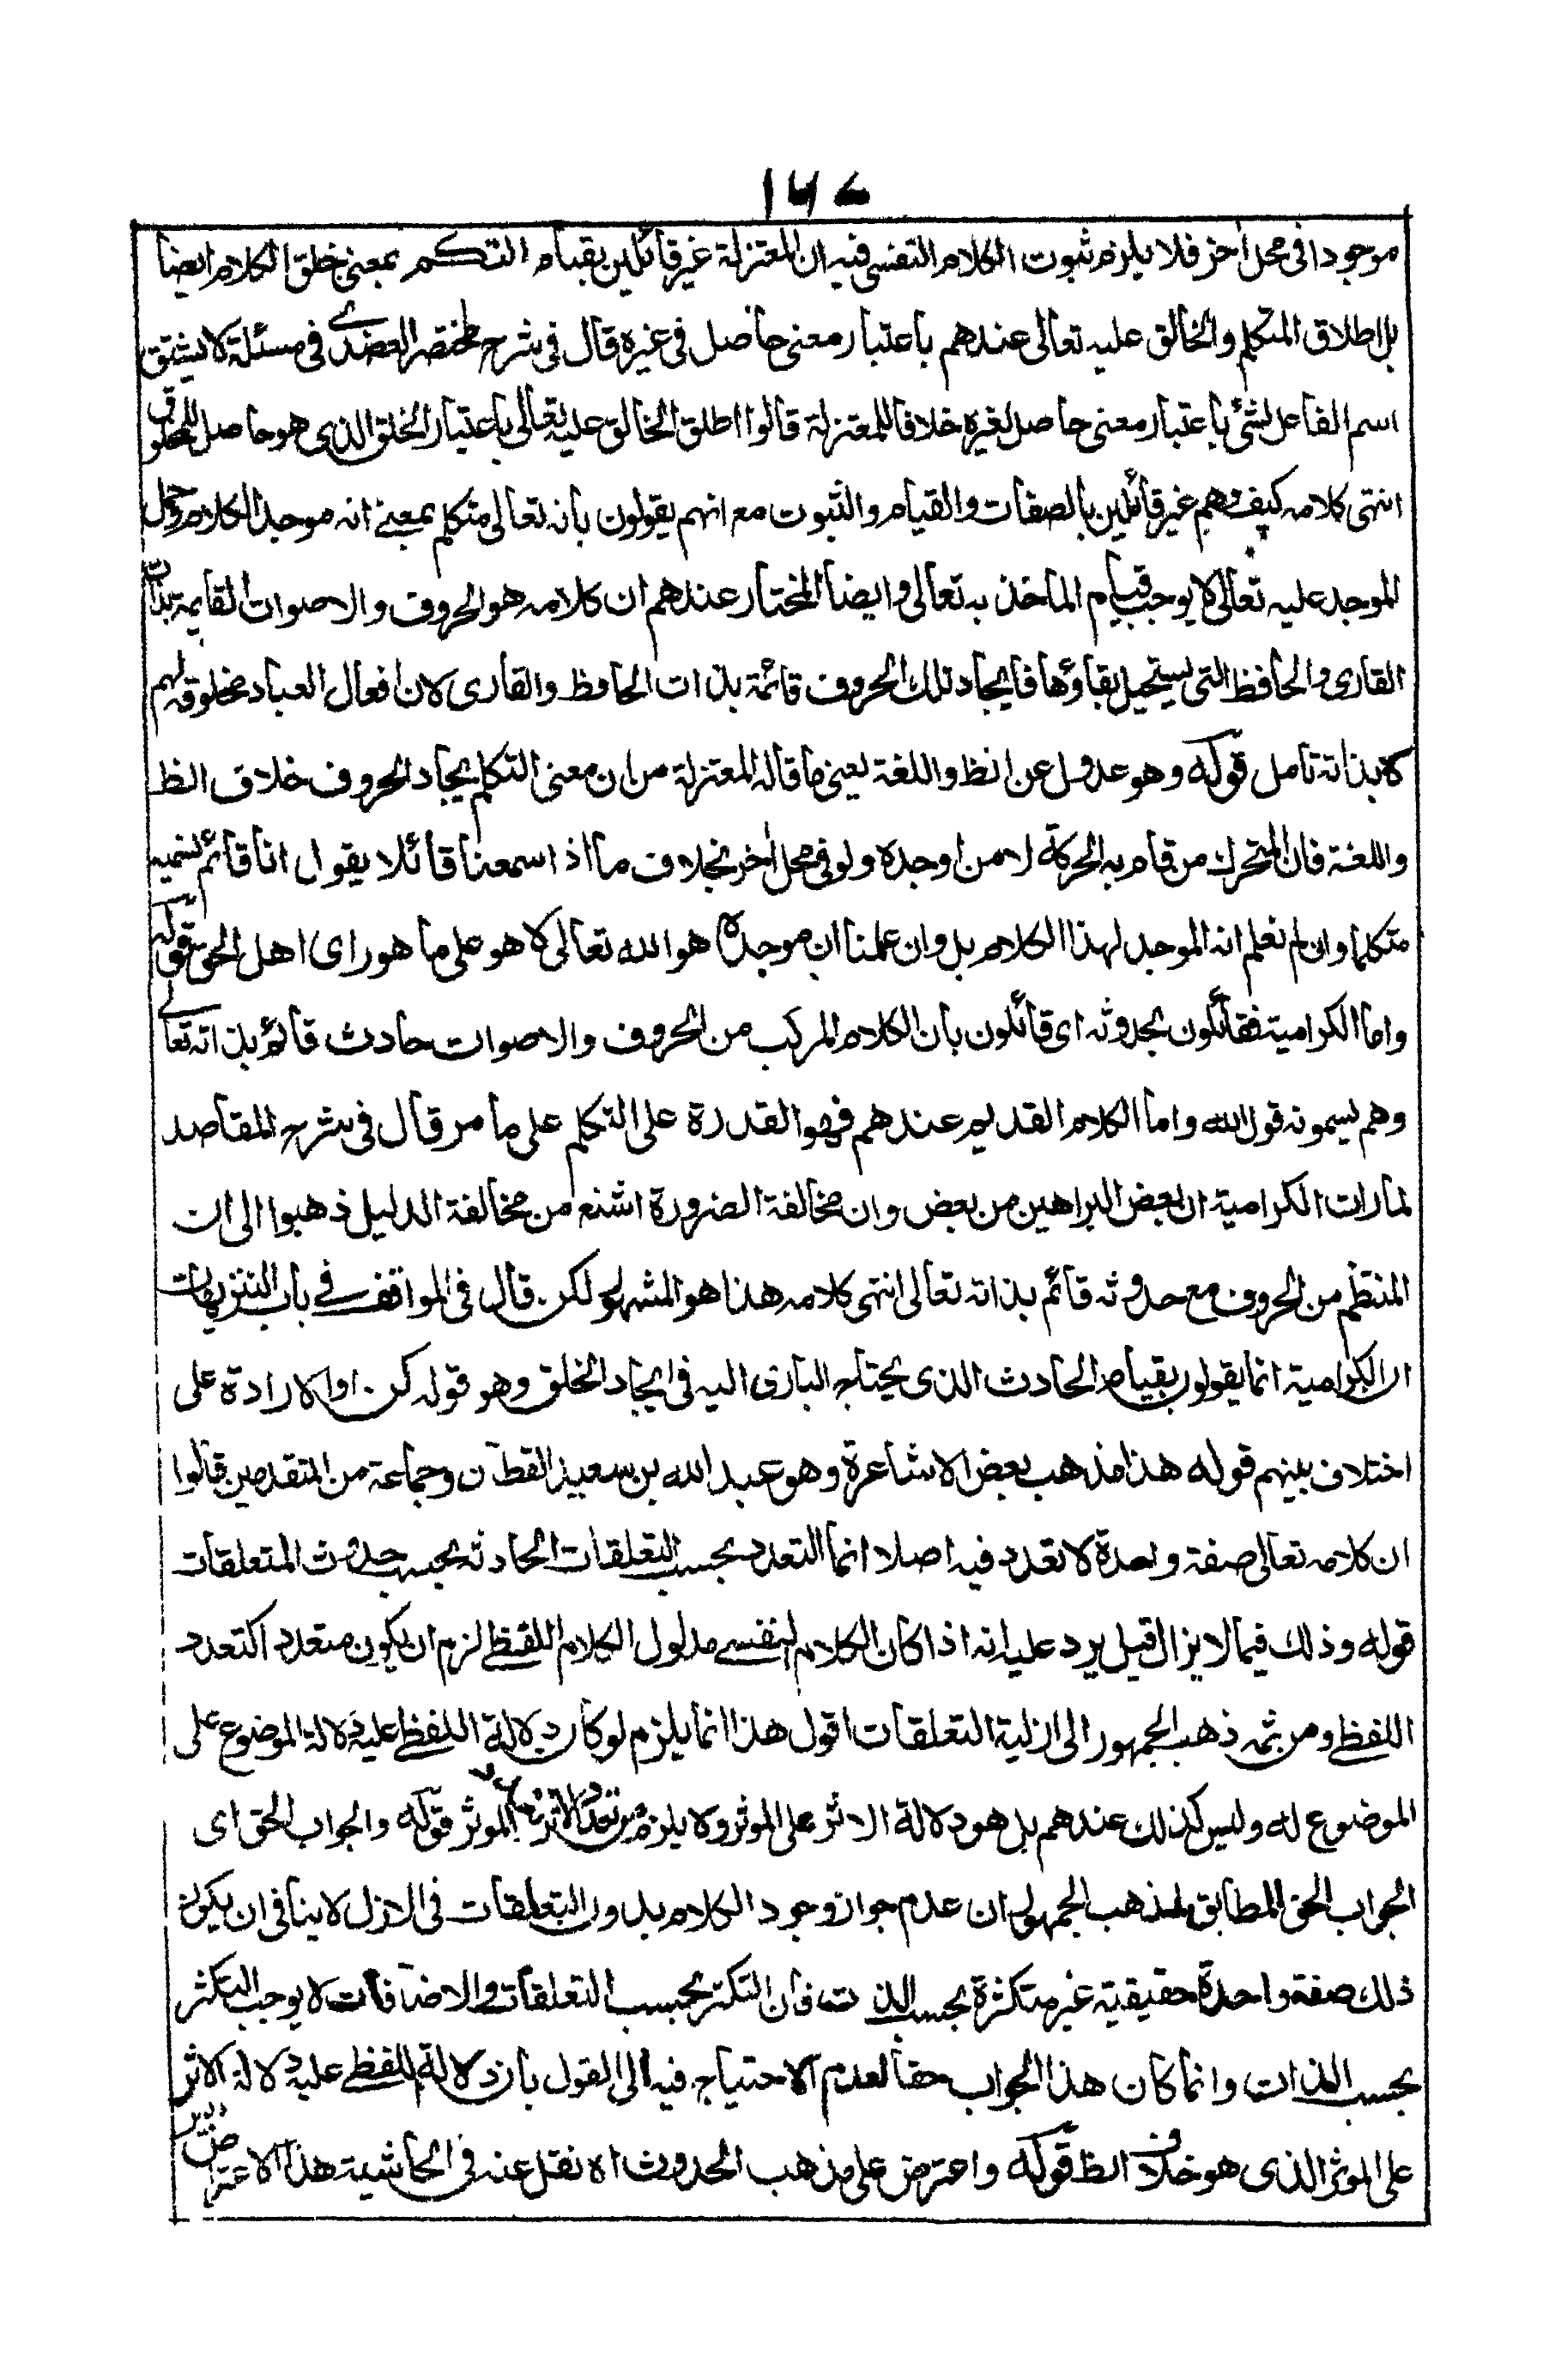 ۱۶۷
موجودا فى محل آخر فلا يلزم ثبوت الكلام النفسى فيه ان المعتزلة غير قائلين بقيام التكلم بمعنى خلق الكلام ايضا
بل اطلاق المتكلم والخالق عليه تعالى عندهم باعتبار معنى حاصل فى غيره قال فى شرح المختصر العضدى فى مسئلة لا يشتق
اسم الفاعل لشئ باعتبار معنى حاصل لغيره خلافا للمعتزلة قالوا اطلق الخالق عليه تعالى باعتبار الخلق الذى هو حاصل للمخلوق
انتهى كلامه كيف وهم غير قائلين بالصفات والقيام والثبوت مع انهم يقولون بانه تعالى متكلم بمعنى انه موجد الكلام وحمل
الموجد عليه تعالى لا يوجب قيام الماخذ به تعالى وايضا المختار عندهم ان كلامه هو الحروف والاصوات القايمة بذات
القارى والحافظ التى يستحيل بقاؤها فايجاد تلك الحروف قائمة بذات الحافظ والقارى لان افعال العباد مخلوقة لهم
لا بذاته تامل قوله وهو عدول عن الظ واللغة يعنى ما قاله المعتزلة من ان معنى التكلم ايجاد الحروف خلاف الظ
واللغة فان المتحرك من قام به الحركة لا من اوجده ولو فى محل آخر بخلاف ما اذا سمعنا قائلا يقول انا قائم نسميه
متكلما وان لم نعلم انه الموجد لهذا الكلام بل وان علمنا ان موجده هو الله تعالى لا هو على ما هو راى اهل الحق قوله
واما الكرامية فقائلون بحدوثه اى قائلون بان الكلام المركب من الحروف والاصوات حادث قائم بذاته تعالى
وهم يسمونه قول الله واما الكلام القديم عندهم فهو القدرة على التكلم على ما مر قال فى شرح المقاصد
لما رات الكرامية ان بعض البراهين من بعض وان مخالفة الضرورة اشنع من مخالفة الدليل ذهبوا الى ان
المنتظم من الحروف مع حدوثه قائم بذاته تعالى انتهى كلامه هذا هو المشهور لكن قال فى المواقف فى باب التنزيهات
ان الكرامية انما يقولون بقيام الحادث الذى يحتاج البارى اليه فى ايجاد الخلق وهو قوله كن او الارادة على
اختلاف بينهم قوله هذا مذهب بعض الاشاعرة وهو عبد الله بن سعيد القطان وجماعة من المتقدمين قالوا
ان كلامه تعالى صفة واحدة لا تعدد فيه اصلا انما التعدد بحسب التعلقات الحادثه بحسب حدوث المتعلقات
قوله وذلك فيما لا يزال قيل يرد عليه انه اذا كان الكلام النفسى مدلول الكلام اللفظى لزم ان يكون متعددا كتعدد
اللفظى ومن ثمه ذهب الجمهور الى ازلية التعلقات اقول هذا انما يلزم لو كان دلالة اللفظى عليه دلالة الموضوع على
الموضوع له وليس كذلك عندهم بل هو دلالة الاثر على الموثر ولا يلزم من تعدد الاثر تعدد الموثر قوله والجواب الحق اى
الجواب الحق المطابق لمذهب الجمهور ان عدم جواز وجود الكلام بدون التعلقات فى الازل لا ينافى ان يكون
ذلك صفة واحدة حقيقية غير متكثرة بحسب الذات فان التكثر بحسب التعلقات والاضافات لا يوجب التكثر
بحسب الذات وانما كان هذا الجواب حقا لعدم الاحتياج فيه الى القول بان دلالة اللفظى عليه دلالة الاثر
على الموثر الذى هو خلاف الظ قوله واعترض على مذهب الحدوث اه نقل عنه فى الحاشية هذا الاعتراض